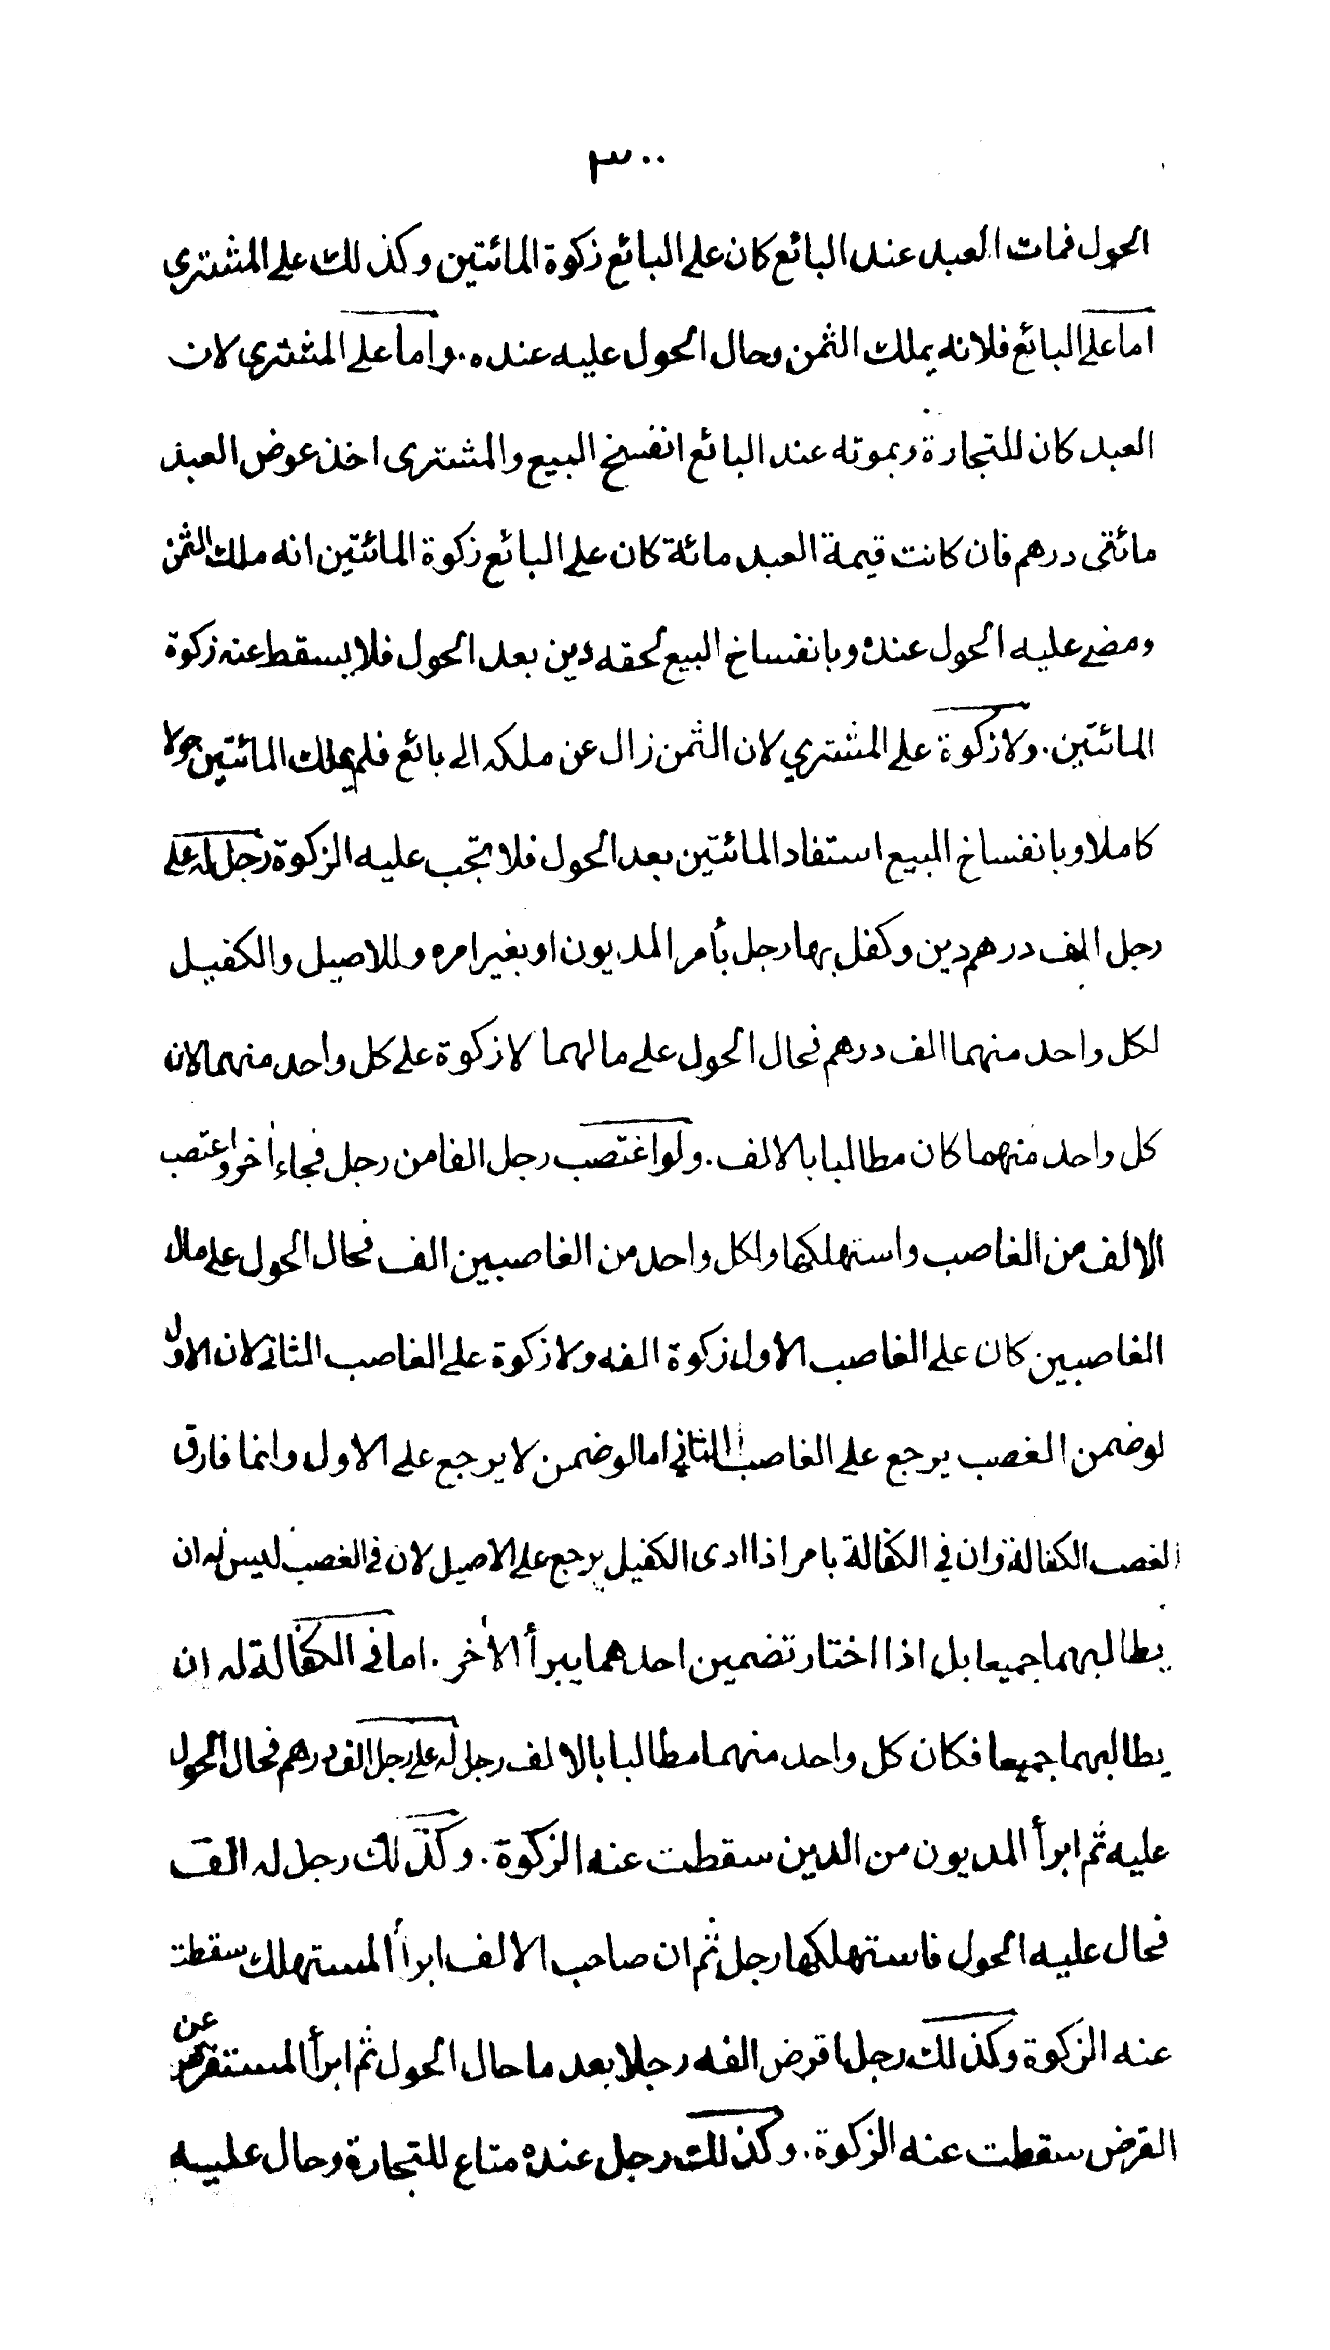 ٣٠٠
الحول فمات العبد عند البائع كان على البائع زكوة المائتين وكذلك على المشترى
اما على البائع فلانه يملك الثمن وحال الحول عليه عنده . واما على المشترى لان
العبد كان للتجارة وبموته عند البائع انفسخ البيع والمشترى اخذ عوض العبد
مائتى درهم فان كانت قيمة العبد مائة كان على البائع زكوة المائتين انه ملك الثمن
ومضى عليه الحول عنده وبانفساخ البيع لحقه دين بعد الحول فلا يسقط عنه زكوة
المائتين . ولا زكوة على المشتري لان الثمن زال عن ملكه الى بائع فلم يملك المائتين حولا
كاملا وبانفساخ البيع استفاد المائتين بعد الحول فلا تجب عليه الزكوة رجل له على
رجل الف درهم دين وكفل بها رجل بأمر المديون او بغير امره وللاصيل والكفيل
لكل واحد منهما الف درهم فحال الحول على مالهما لا زكوة على كل واحد منهما لان
كل واحد منهما كان مطالبا بالالف . ولو اغتصب رجل الفا من رجل فجاء أخر واغتصب
الالف من الغاصب واستهلكها ولكل واحد من الغاصبين الف فحال الحول على مال
الغاصبين كان على الغاصب الاول زكوة الفه ولا زكوة على الغاصب الثانى لان الاول
لو ضمن الغصب يرجع على الغاصب الثاني اما لو ضمن لا يرجع على الاول وانما فارق
الغصب الكفالة وان في الكفالة بامر اذا ادى الكفيل يرجع على الاصيل لان فى الغصب ليس له ان
يطالبهما جميعا بل اذا اختار تضمين احدهما يبرأ الأخر . اما فى الكفالة له ان
يطالبهما جميعا فكان كل واحد منهما مطالبا بالالف رجل له على رجل الف درهم فحال الحول
عليه ثم ابرأ المديون من الدين سقطت عنه الزكوة . وكذلك رجل له الف
فحال عليه الحول فاستهلكها رجل ثم ان صاحب الالف ابرأ المستهلك سقطت
عنه الزكوة وكذلك رجل اقرض الفه رجلا بعد ما حال الحول ثم ابرأ المستقرض عن
القرض سقطت عنه الزكوة . وكذلك رجل عنده متاع للتجارة وحال عليه